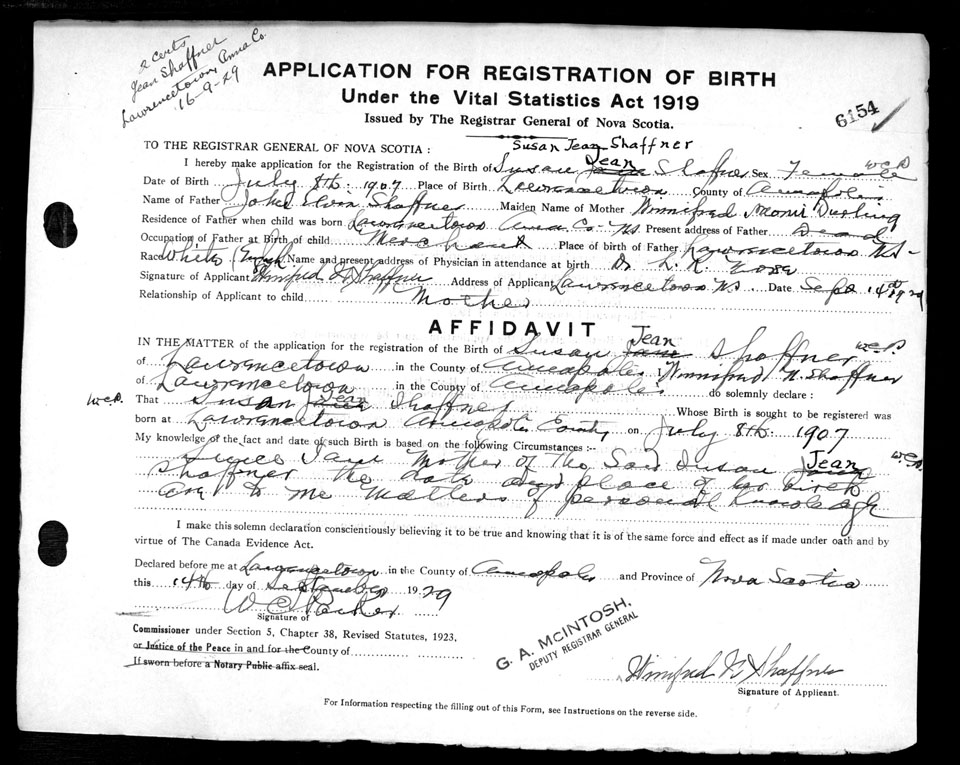 2 Certs
Jean Shaffner
Lawrencetown, Anna Co.
16-9-29
APPLICATION FOR REGISTRATION OF BIRTH
Under the Vital Statistics Act 1919
Issued by The Registrar General of Nova Scotia.
6154
Susan Jean Shaffner
TO THE REGISTRAR GENERAL OF NOVA SCOTIA :
I hereby make application for the Registration of the Birth of Susan Jean Shaffner Sex Female W.C.P.
Date of Birth July 8th. 1907 Place of Birth Lawrencetown County of Annapolis
Name of Father John Shaffner Maiden Name of Mother Winnifred Durling
Residence of Father when child was born Lawrencetown Anna Co. N.S. Present address of Father Dead
Occupation of Father at Birth of child Merchant Place of birth of Father Lawrencetown N.S.
Race White Name and present address of Physician in attendance at birth Dr L. R.
Signature of Applicant Winifred Shaffner Address of Applicant Lawrencetown N.S. Date Sept 14th 1929
Relationship of Applicant to child Mother
AFFIDAVIT
IN THE MATTER of the application for the registration of the Birth of Susan Jean Shaffner W.C.P.
of Lawrencetown in the County of Annapolis Winnifred N. Shaffner
of Lawrencetown in the County of Annapolis do solemnly declare :
W.C.P. That Susan Jean Shaffner Whose Birth is sought to be registered was
born at Lawrencetown Annapolis County on July 8th. 1907
My knowledge of the fact and date of such Birth is based on the following Circumstances :--
I am Mother of the Said Susan Jean W.C.P.
Shaffner the date and place of her birth
are to me matters of personal knowledge
I make this solemn declaration conscientiously believing it to be true and knowing that it is of the same force and effect as if made under oath and by
virtue of The Canada Evidence Act.
Declared before me at Lawrencetown in the County of Annapolis and Province of Nova Scotia
this 14th day of September 1929
W C Parker
Signature of
Commissioner under Section 5, Chapter 38, Revised Statutes, 1923,
or Justice of the Peace in and for the County of
If sworn before a Notary Public affix seal.
G. A. McINTOSH,
DEPUTY REGISTRAR GENERAL
Winifred N Shaffner
Signature of Applicant.
For Information respecting the filling out of this Form, see Instructions on the reverse side.